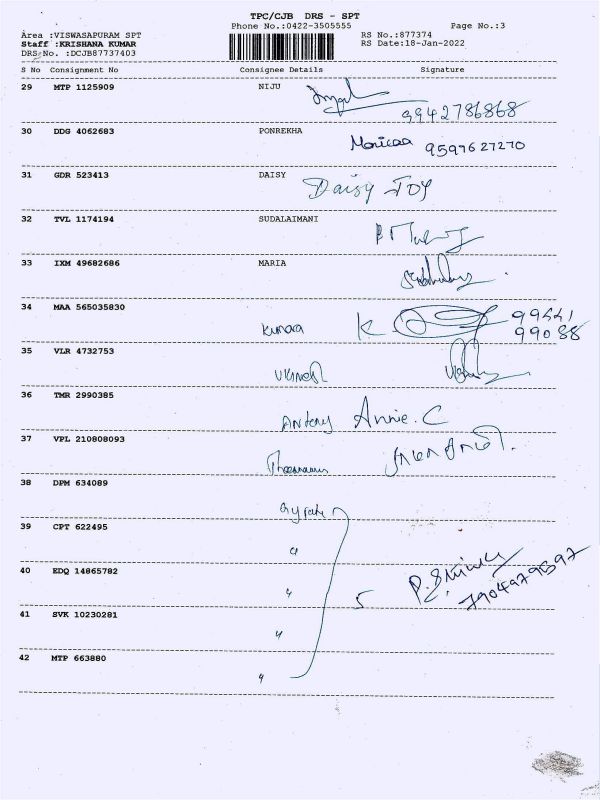 TPC/CJB DRS - SPT
Area :VISWASAPURAM SPT Phone No.:0422-3505555 Page No.:3
Staff :KRISHANA KUMAR RS No.:877374
DRS No. :DCJB87737403 RS Date:18-Jan-2022
S No Consignment No Consignee Details Signature
29 MTP 1125909 NIJU
9942786868
30 DDG 4062683 PONREKHA Monicaa 9597627270
31 GDR 523413 DAISY Daisy JOY
32 TVL 1174194 SUDALAIMANI
33 IXM 49682686 MARIA
34 MAA 565035830 Kumaa K 99441
99088
35 VLR 4732753
36 TMR 2990385 Antony Annie. C
37 VPL 210808093
38 DPM 634089
39 CPT 622495 "
40 EDQ 14865782 " 5
7904979597
41 SVK 10230281 "
42 MTP 663880 "